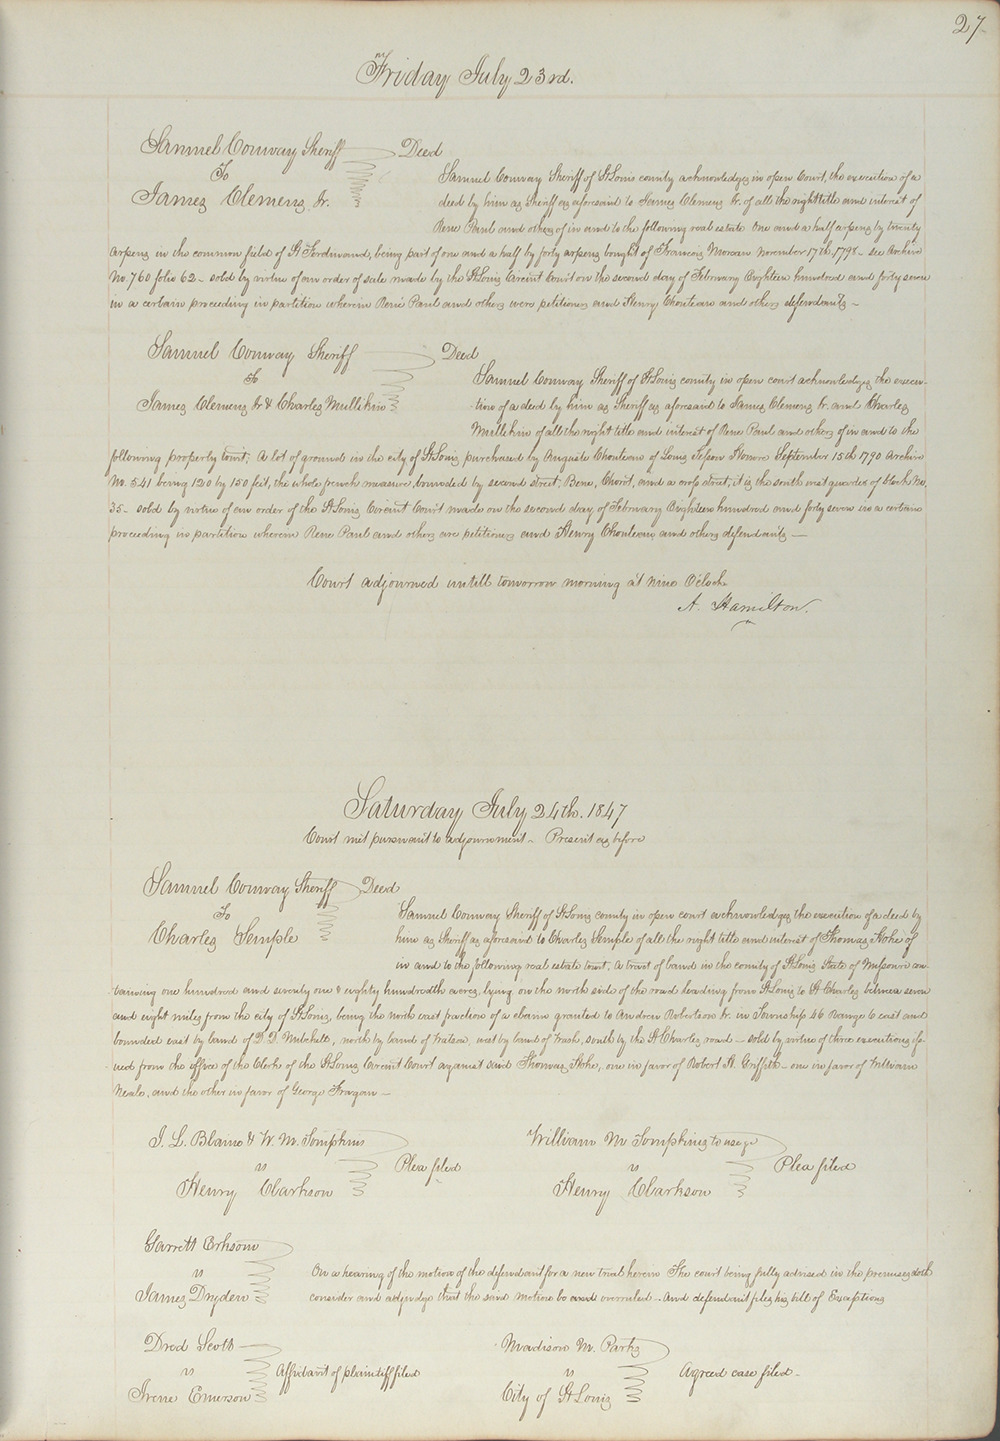 27
Friday July 23rd.
Samuel Conway Sheriff Deed
To
James Clemens Jr.
Samuel Conway Sheriff of St Louis county acknowledges in open Court, the execution of a
deed by him as Sheriff as aforesaid to James Clemens Jr. of all the right title and interest of
Rene Paul and others of in and to the following real estate One and a half arpens by twenty
arpens in the common field of St Ferdinand, being part of one and a half by forty arpens bought of Francois Moreau november 17th 179 see Archive
No. 760 folio 62 - sold by virtue of an order of sale made by the St Louis Circuit Court on the second day of February Eighteen hundred and forty seven
in a certain proceeding in partition wherein Rene Paul and others were petitioners and Henry Chouteau and others defendants -
Samuel Conway Sheriff Deed
To
James Clemens Jr & Charles Mullikin
Samuel Conway Sheriff of St Louis county in open court acknowledges the execu-
tion of a deed by him as Sheriff as aforesaid to James Clemens Jr. and Charles
Mullikin of all the right title and interest of Rene Paul and others of in and to the
following property towit; A lot of ground in the city of St Louis purchased by Auguste Chouteau of Louis Tesson Honore September 15th 1790 Archive
No. 541 being 120 by 150 feet, the whole french measure, bounded by second street, and a cross street, it is the south west quarter of block No.
35 - sold by virtue of an order of the St Louis Circuit Court made on the second day of February Eighteen hundred and forty seven in a certain
proceeding in partition wherein Rene Paul and others are petitioners and Henry Chouteau and others defendants -
Court adjourned untill tomorrow morning at nine O'clock
A. Hamilton.
Saturday July 24th. 1847
Court met pursuant to adjournment - Present as before
Samuel Conway Sheriff Deed
To
Charles Semple
Samuel Conway Sheriff of St Louis county in open court acknowledges the execution of a deed by
him as Sheriff as aforesaid to Charles Semple of all the right title and interest of Thomas Hoke of
in and to the following real estate towit; A tract of land in the county of St Louis State of Missouri con-
taining one hundred and seventy one & eighty hundredth acres, lying on the north side of the road leading from St Louis to St Charles between seven
and eight miles from the city of St Louis, being the north east fraction of a claim granted to Andrew Robertson Jr. in Township 46 Range 6 east and
bounded east by land of D. D. Mitchell, north by land of Watson, west by land of Wash, south by the St Charles road - sold by virtue of three executions is-
sued from the office of the Clerk of the St Louis Circuit Court against said Thomas Hoke, one in favor of Robert H. Griffith - one in favor of William
Neale, and the other in favor of George Tragan -
J. L. Blaine & W. M. Tompkins
vs Plea filed
Henry Clarkson
William M Tompkins to use &c
vs Plea filed
Henry Clarkson
Garrett Erkson
vs
James Dryden
On a hearing of the motion of the defendant for a new trial herein The court being fully advised in the premises doth
consider and adjudge that the said motion be and overruled - And defendant files his bill of Exceptions
Dred Scott
vs Affidavit of plaintiff filed
Irene Emerson
Madison M. Parks
vs Agreed case filed -
City of St Louis